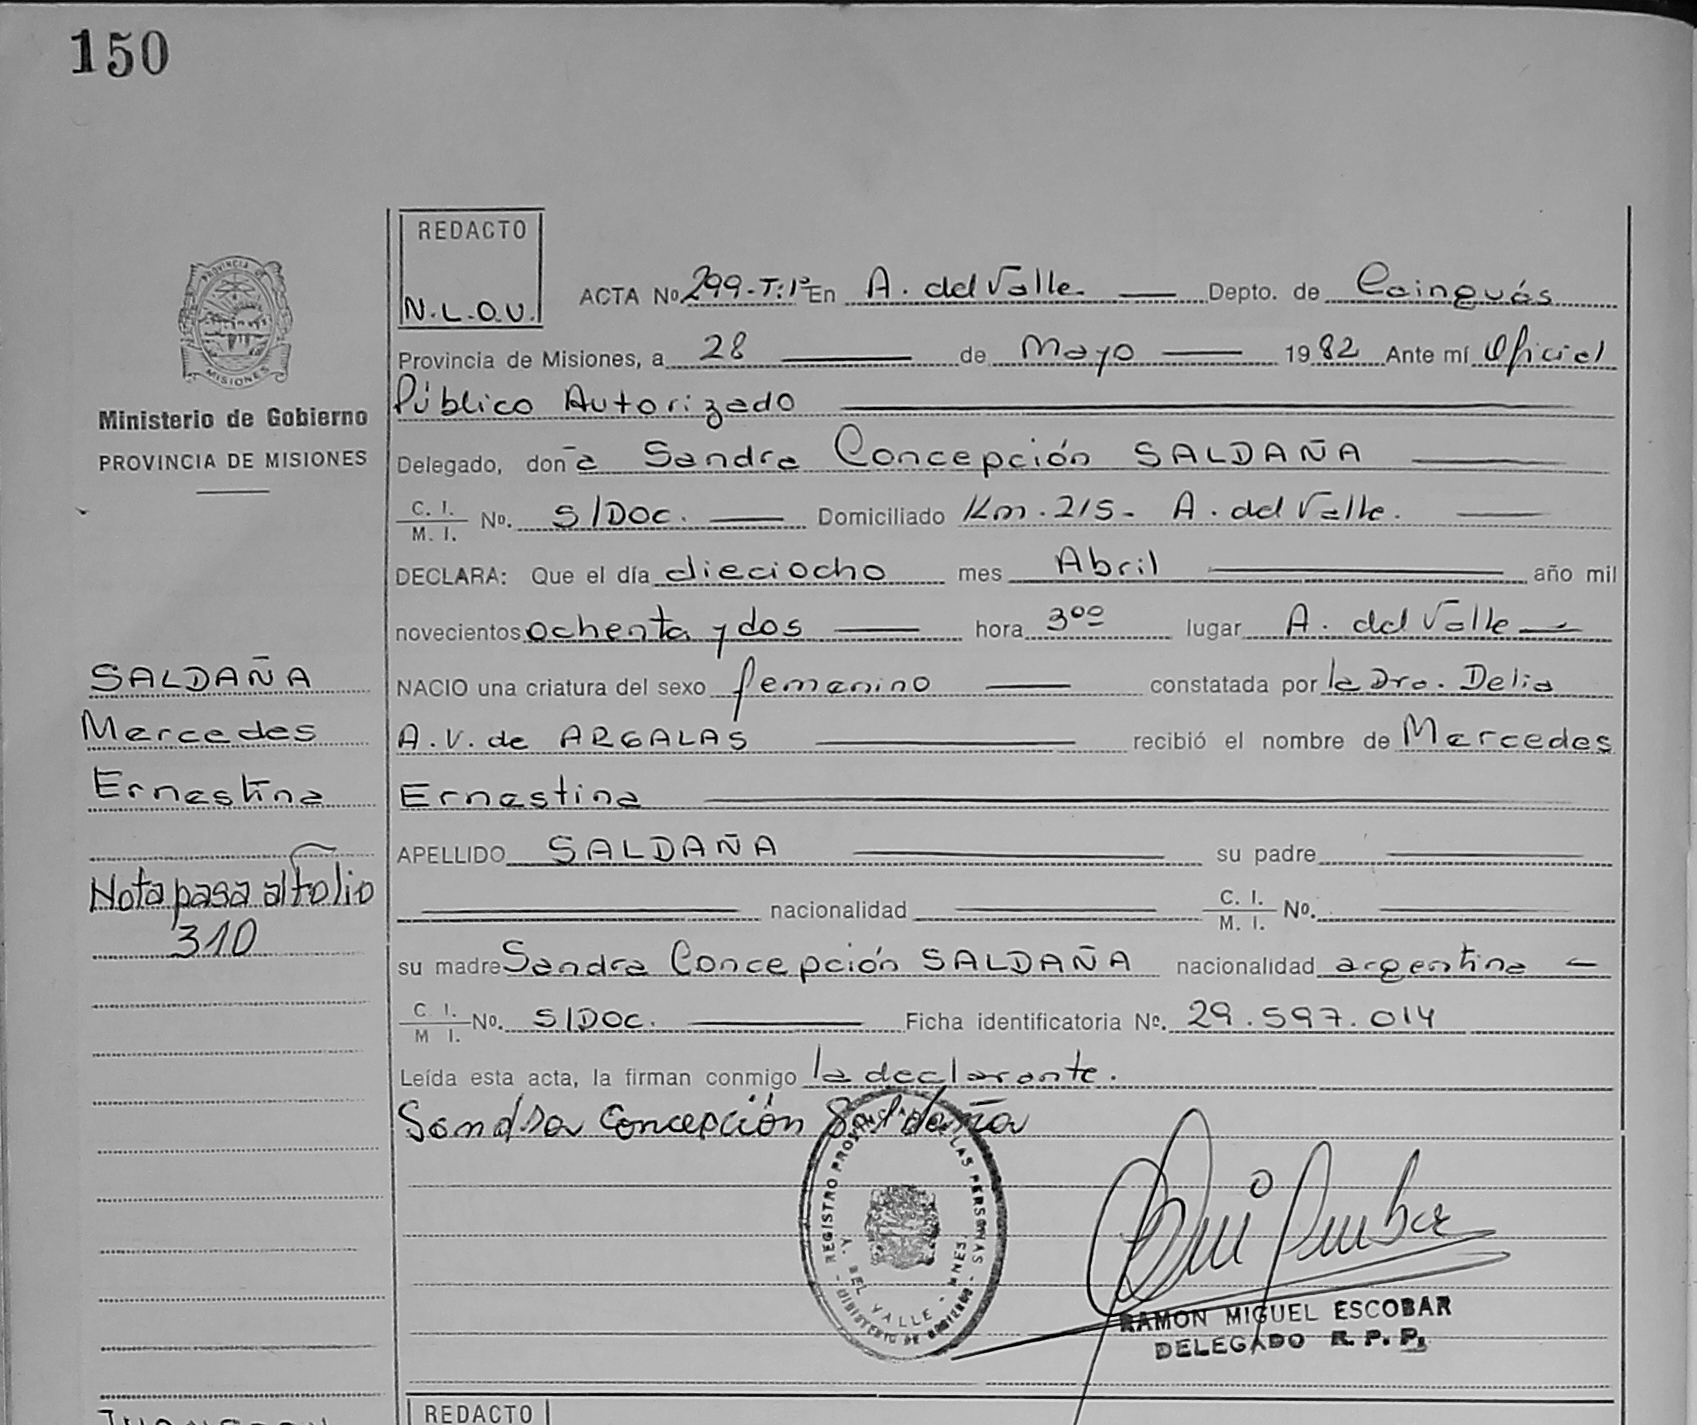 150
REDACTO
N.L.O.V.
ACTA No 299-T:1º En A. del Valle. Depto. de Cainguás
Provincia de Misiones, a 28 de Mayo 1982 Ante mí Oficial
Público Autorizado
Delegado, don a Sandra Concepción SALDAÑA
C. I. M. I. No. S/DOC. Domiciliado Km. 215- A. del Valle.
DECLARA: Que el día dieciocho mes Abril año mil
novecientos ochenta y dos hora 3ºº lugar A. del Valle
NACIO una criatura del sexo femenino constatada por la Dra. Delia
A.V. de ARGALAS recibió el nombre de Mercedes
Ernestina
APELLIDO SALDAÑA su padre
nacionalidad C. I. M. I. No.
su madre Sandra Concepción SALDAÑA nacionalidad argentina
C I. M I. No. S/DOC. Ficha identificatoria No. 29.597.014
Leída esta acta, la firman conmigo la declarante.
Sandra Concepción Saldaña
PROVINCIA DE
MISIONES
Ministerio de Gobierno
PROVINCIA DE MISIONES
SALDAÑA
Mercedes
Ernestina
Nota pasa al folio
310
REGISTRO PROV LAS PERSONAS
MINISTERIO DE GOBIERNO
A. DEL VALLE - MNES.
RAMON MIGUEL ESCOBAR
DELEGADO R. P. P.
REDACTO